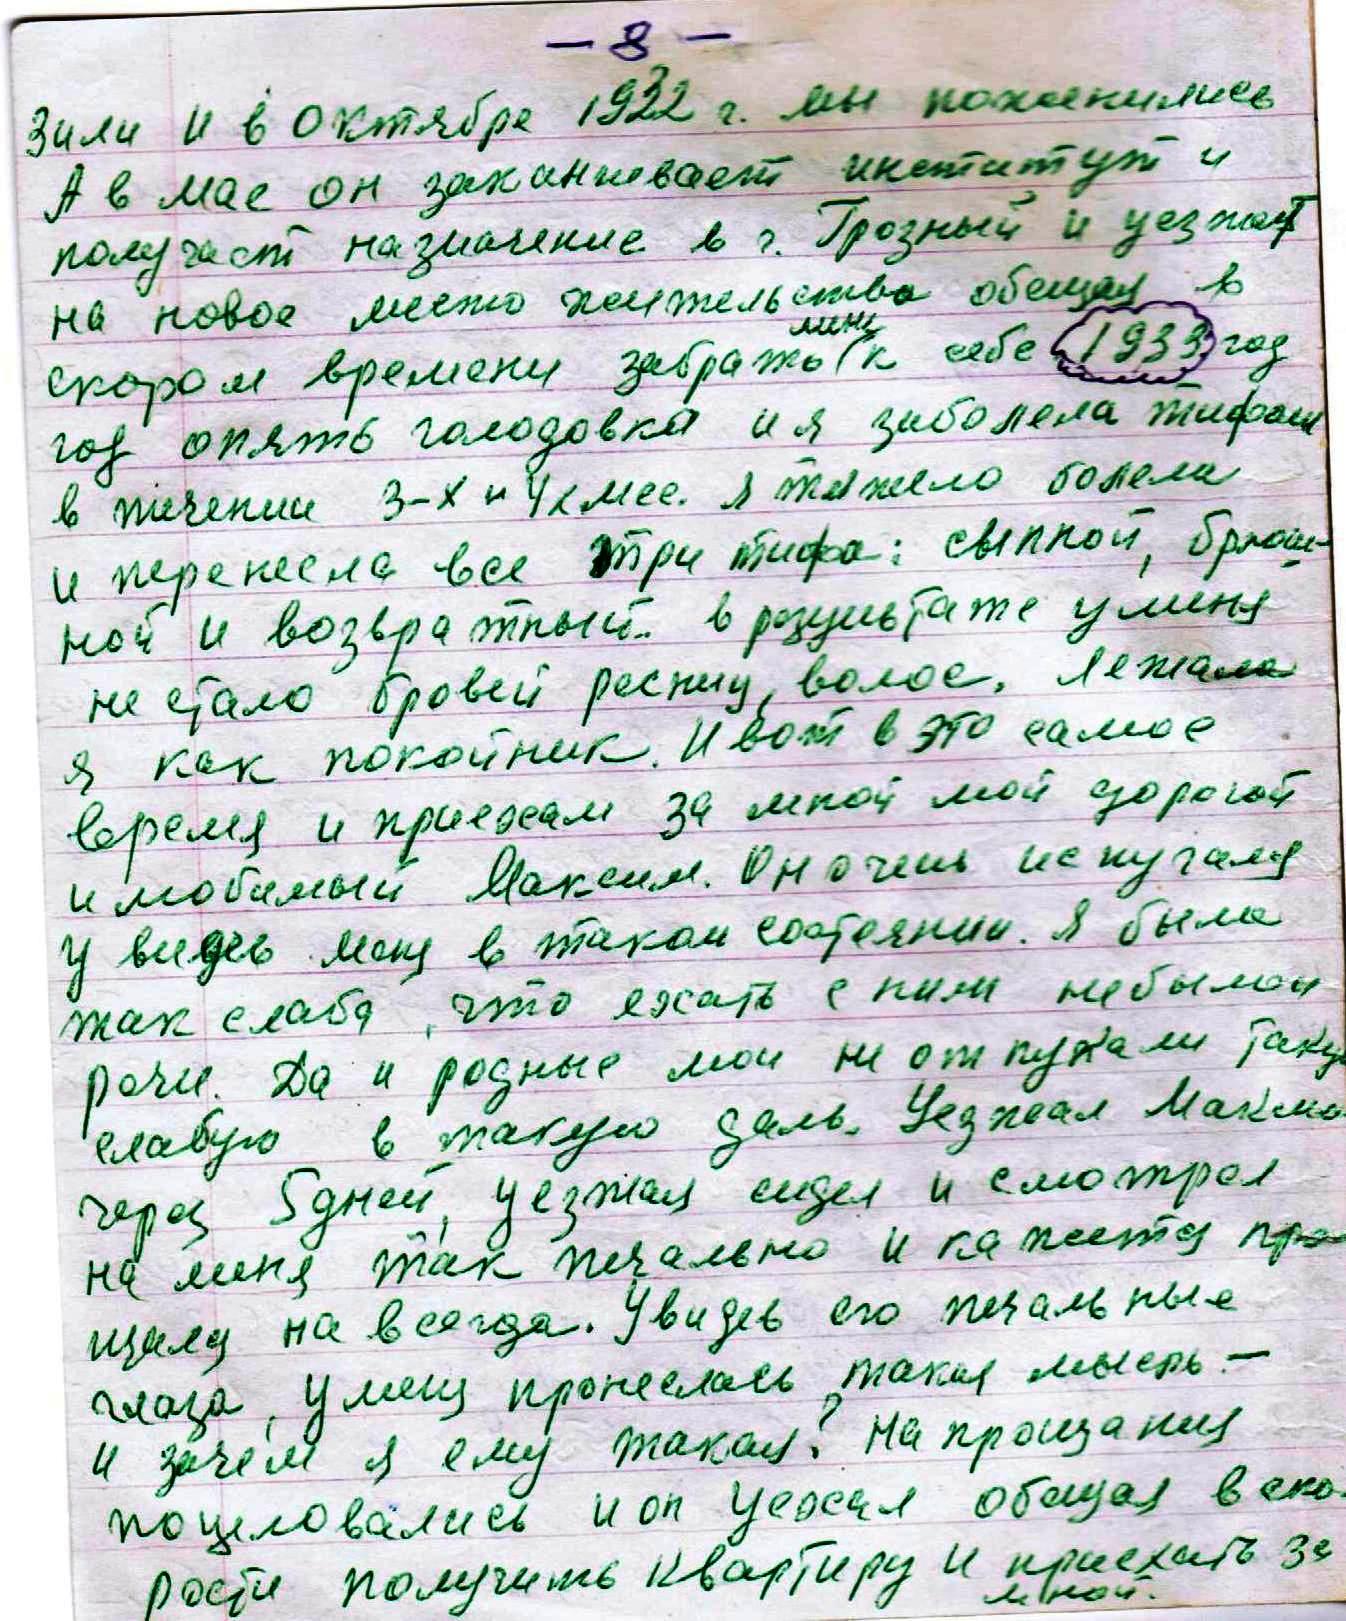 — 8 —
зили и в Октябре 1932 г. мы поженились
А в мае он заканчивает институт и
получает назначение в г. Грозный и уезжает
на новое место жительства обещая в
меня
скором времени забрать к себе 1933 год
год опять голодовка и я заболела тифом
в течении 3-х и 4х мес. я тяжело болела
и перенесла все три тифа: сыпной, брюш-
ной и возвратный.. в результате у меня
не стало бровей ресниц, волос. Лежала
я как покойник. И вот в это самое
время и приехал за мной мой дорогой
и любимый Максим. Он очень испугался
увидев меня в таком состоянии. Я была
так слаба, что ехать с ним небыло и
речи. Да и родные мои не отпускали такую
слабую в такую даль. Уезжал Максим
через 5 дней, уезжая сидел и смотрел
на меня так печально и кажется про
щался на всегда. Увидев его печальные
глаза, у меня пронеслась такая мысль —
и зачем я ему такая? На прощания
поцеловались и он уехал обещая вско-
рости получить квартиру и приехать за
мной.